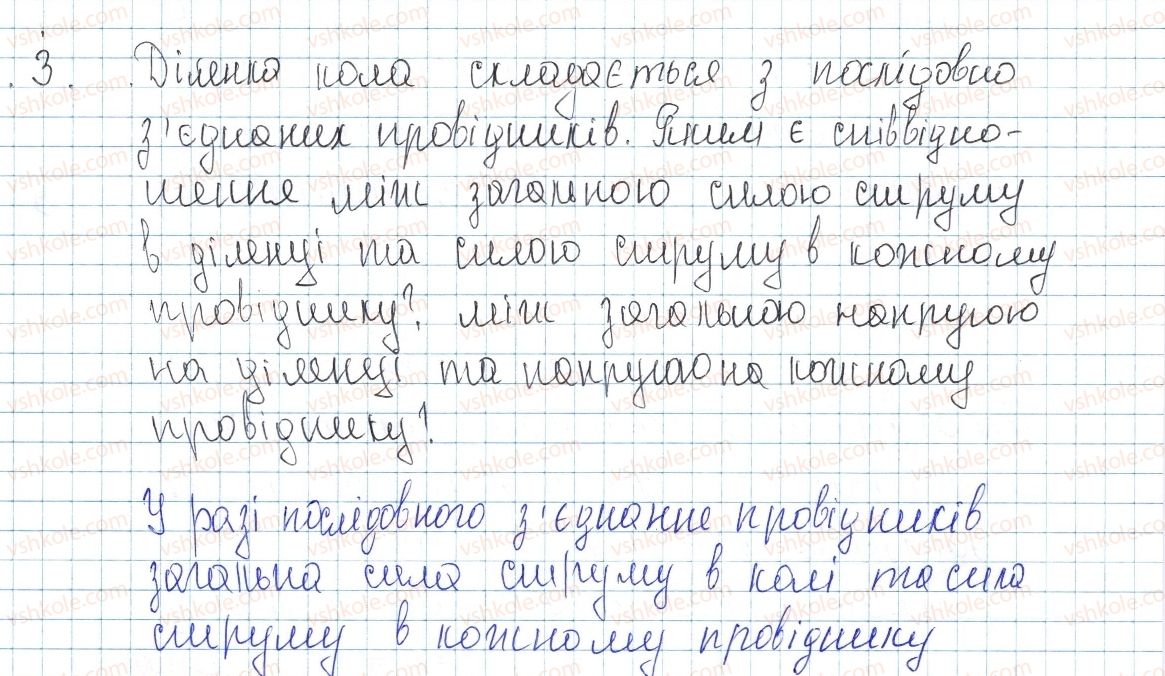 3. Ділянка кола складається з послідовно
з'єднаних провідників. Яким є співвідно-
шення між загальною силою струму
в ділянці та силою струму в кожному
провіднику? між загальною напругою
на ділянці та напругою на кожному
провіднику?
У разі послідовного з'єднання провідників
загальна сила струму в колі та сила
струму в кожному провіднику